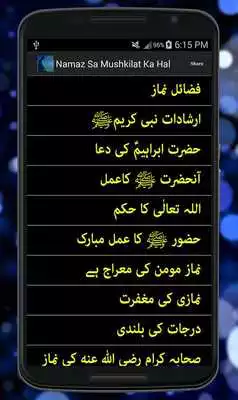 95% 6:15 PM
Namaz Sa Mushkilat Ka Hal Share
فضائل نماز
ارشادات نبی کریمﷺ
حضرت ابراہیمؑ کی دعا
آنحضرت ﷺ کاعمل
اللہ تعالٰی کا حکم
حضور ﷺ کا عمل مبارک
نماز مومن کی معراج ہے
نمازی کی مغفرت
درجات کی بلندی
صحابہ کرام رضی اللہ عنہ کی نماز